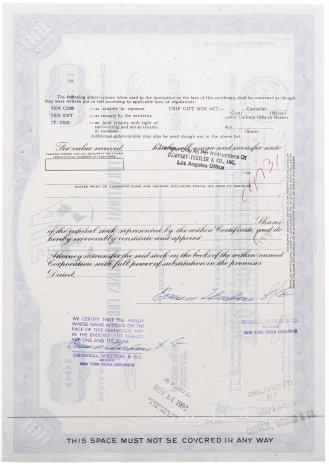 The following abbreviations, when used in the inscription on the face of this certificate, shall be construed as though
they were written out in full according to applicable laws or regulations:
TEN COM — as tenants in common UNIF GIFT MIN ACT — Custodian
(Cust) (Minor)
TEN ENT — as tenants by the entireties under Uniform Gifts to Minors
JT. TEN — as joint tenants with right of Act
survivorship and not as tenants (State)
in common
Additional abbreviations may also be used though not in the above list.
For value received hereby sell, assign and transfer unto
PLEASE INSERT SOCIAL SECURITY OR OTHER
IDENTIFYING NUMBER OF ASSIGNEE
Instructions Of
DEMPSEY-TEGELER & CO., INC.
Los Angeles Office
PLEASE PRINT OR TYPEWRITE NAME AND ADDRESS INCLUDING POSTAL ZIP CODE OF ASSIGNEE
Shares
of the capital stock represented by the within Certificate, and do
hereby irrevocably constitute and appoint
Attorney to transfer the said stock on the books of the within named
Corporation with full power of substitution in the premises
Dated,
WE CERTIFY THAT THE PERSON
WHOSE NAME APPEARS ON THE
FACE OF THIS CERTIFICATE AND
IN THE ENDORSEMENT THEREOF
ARE ONE AND THE SAME
CROWELL, WEEDON & CO.
MEMBER
NEW YORK STOCK EXCHANGE
CROWELL, WEEDON & CO.
MEMBER
NEW YORK STOCK EXCHANGE
NOV 14
DELIVERED
BY
CROWELL, WEEDON & CO.
THIS SPACE MUST NOT BE COVERED IN ANY WAY